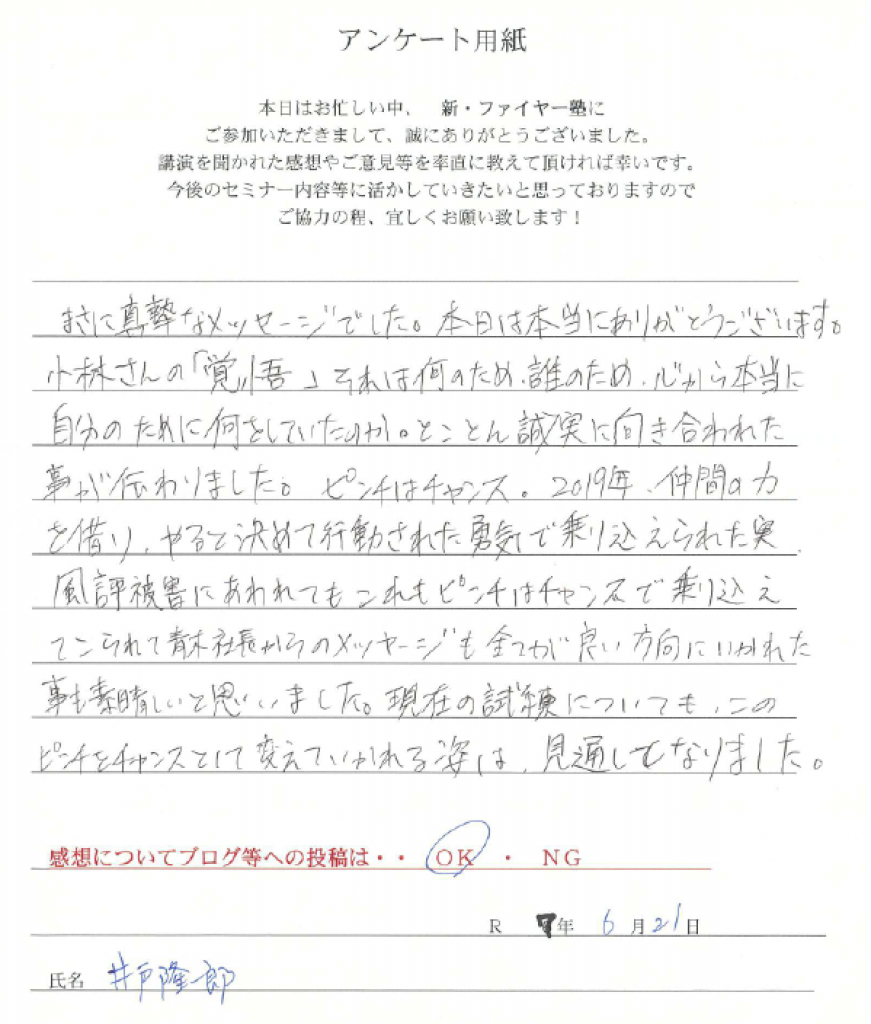 アンケート用紙
本日はお忙しい中、 新・ファイヤー塾に
ご参加いただきまして、誠にありがとうございました。
講演を聞かれた感想やご意見等を率直に教えて頂ければ幸いです。
今後のセミナー内容等に活かしていきたいと思っておりますので
ご協力の程、宜しくお願い致します！
まさに真摯なメッセージでした。本日は本当にありがとうございます。
小林さんの「覚悟」それは何のため、誰のため、心から本当に
自分のために何をしていたのか。とことん誠実に向き合われた
事が伝わりました。ピンチはチャンス。2019年、仲間の力
を借り、やると決めて行動された勇気で乗り込えられた実
風評被害にあわれてもこれもピンチはチャンスで乗り込え
てこられて青木社長からのメッセージも全てが良い方向にいかれた
事も素晴しいと思いました。現在の試練についても、この
ピンチをチャンスとして変えていかれる姿は、見通しとなりました。
感想についてブログ等への投稿は・・ OK ・ NG
R 7年 6月21日
氏名 井戸隆一郎